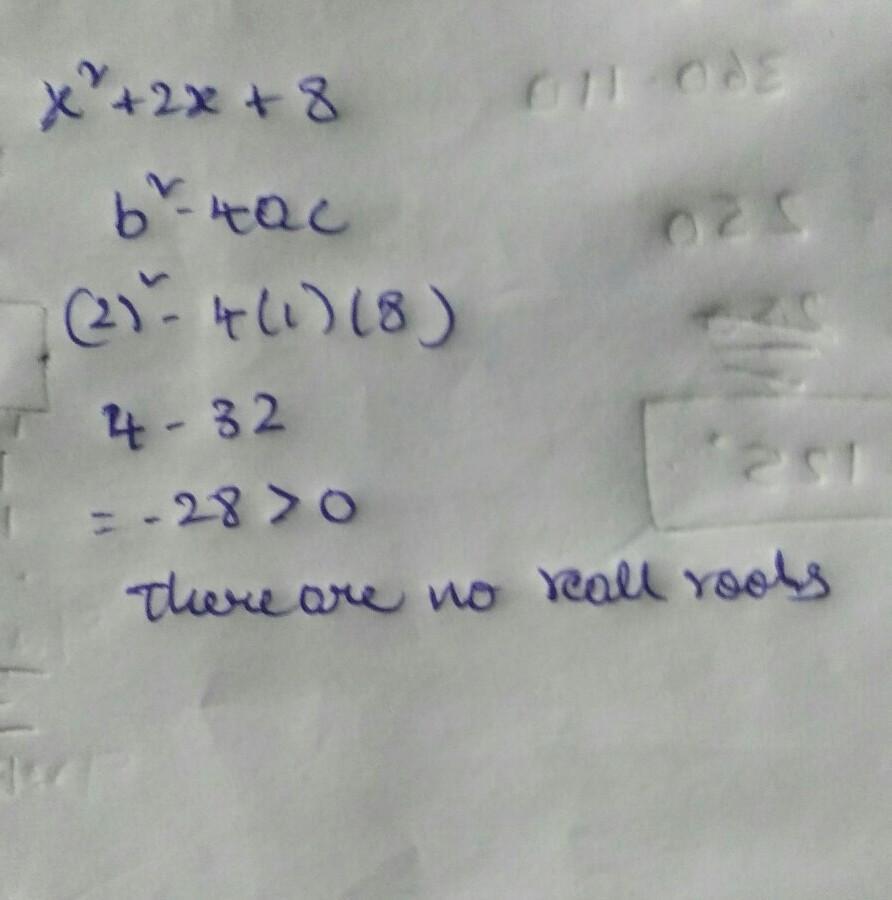 x²+2x + 8
b²-4ac
(2)²- 4(1)(8)
4 - 32
= -28>0
There are no reall roots